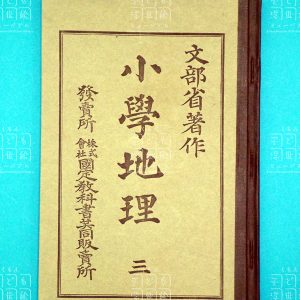 文部省著作
小學地理 三
發賣所 株式會社 國定教科書共同販賣所